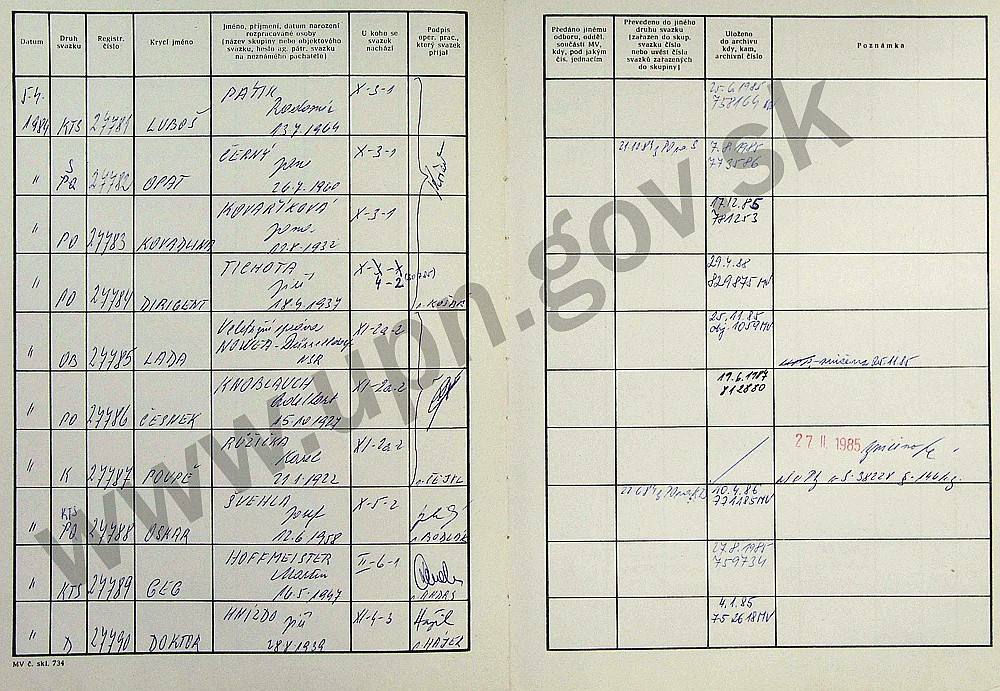 Datum
Druh svazku
Registr. číslo
Krycí jméno
Jméno, příjmení, datum narození rozpracované osoby (název skupiny nebo objektového svazku, heslo ag. pátr. svazku na neznámého pachatele)
U koho se svazek nachází
Podpis oper. prac., který svazek přijal
Předáno jinému odboru, odděl. součásti MV, kdy, pod jakým čís. jednacím
Převedeno do jiného druhu svazku (zařazen do skup. svazku číslo nebo uvést čísla svazků zařazených do skupiny)
Uloženo do archivu kdy, kam, archivní číslo
Poznámka
5.4. 1984 KTS 27781 LUBOŠ PATIK Radomír 13.7.1964 X-3-1 25.6.1985 758164 MV
" PO 27782 OPAT ČERNÝ 26.7.1960 X-3-1 7.8.1985 773586
" PO 27783 KOVADLINA KOVAŘÍKOVÁ 1932 X-3-1 17.12.85 781253
" PO 27784 DIRIGENT TICHOTA Jiří 18.4.1937 X-4-2 KOŠAŘ 29.4.88 829875 MV
" OB 27785 LADA Veletržní správa NOWEA - Düsseldorf NSR XI-2a-2 25.11.85 obj. 1059 MV 25.11.85
" PO 27786 ČESNEK KNOBLAUCH Adelbert 15.10.1927 XI-2a-2 19.6.1987 812880
" K 27787 POUPĚ RŮŽIČKA Karel 21.1.1922 XI-2a-2 27 II. 1985
" KTS PO 27788 OSKAR ŠVEHLA Josef 12.6.1958 X-5-2 BODLÁK 10.4.86 771485 MV
" KTS 27789 GEG HOFFMEISTER Martin 16.5.1947 II-6-1 27.8.1985 759734
" D 27790 DOKTOR HNÍZDO Jiří 28.X.1939 XI-4-3 HÁJEK 4.1.85 752618 MV
MV č. skl. 734
www.upn.gov.sk